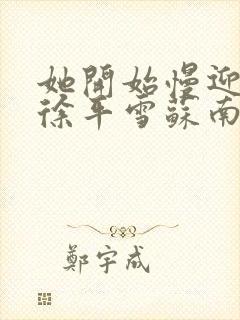 她開始慢迎
徐平雪蘇南
鄭宇成